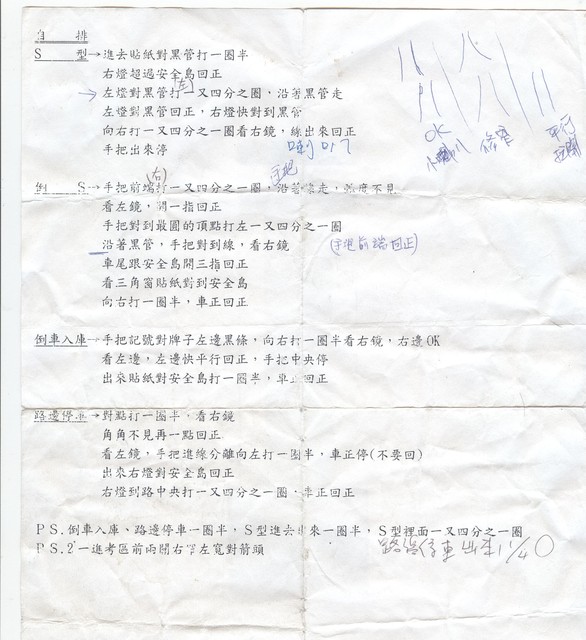 自 排
S 型→進去貼紙對黑管打一圈半
右燈超過安全島回正
左燈對黑管打(左)一又四分之圈，沿著黑管走
左燈對黑管回正，右燈快對到黑管
向右打一又四分之一圈看右鏡，線出來回正
手把出來停
OK
平行
倒 S→手把前端打(右)一又四分之一圈，沿著線走，不見
看左鏡，開一指回正
手把對到最圓的頂點打左一又四分之一圈
沿著黑管，手把對到線，看右鏡 (手把前端回正)
車尾跟安全島開三指回正
看三角窗貼紙對到安全島
向右打一圈半，車正回正
倒車入庫→手把記號對牌子左邊黑條，向右打一圈半看右鏡，右邊OK
看左邊，左邊快平行回正，手把中央停
出來貼紙對安全島打一圈半，車正回正
路邊停車→對點打一圈半，看右鏡
角角不見再一點回正
看左鏡，手把進線分離向左打一圈半，車正停(不要回)
出來右燈對安全島回正
右燈到路中央打一又四分之一圈，車正回正
PS.倒車入庫、路邊停車一圈半，S型進去出來一圈半，S型裡面一又四分之一圈
PS.2 一進考區前兩關右窄左寬對箭頭
路邊停車出來1 1/4 O